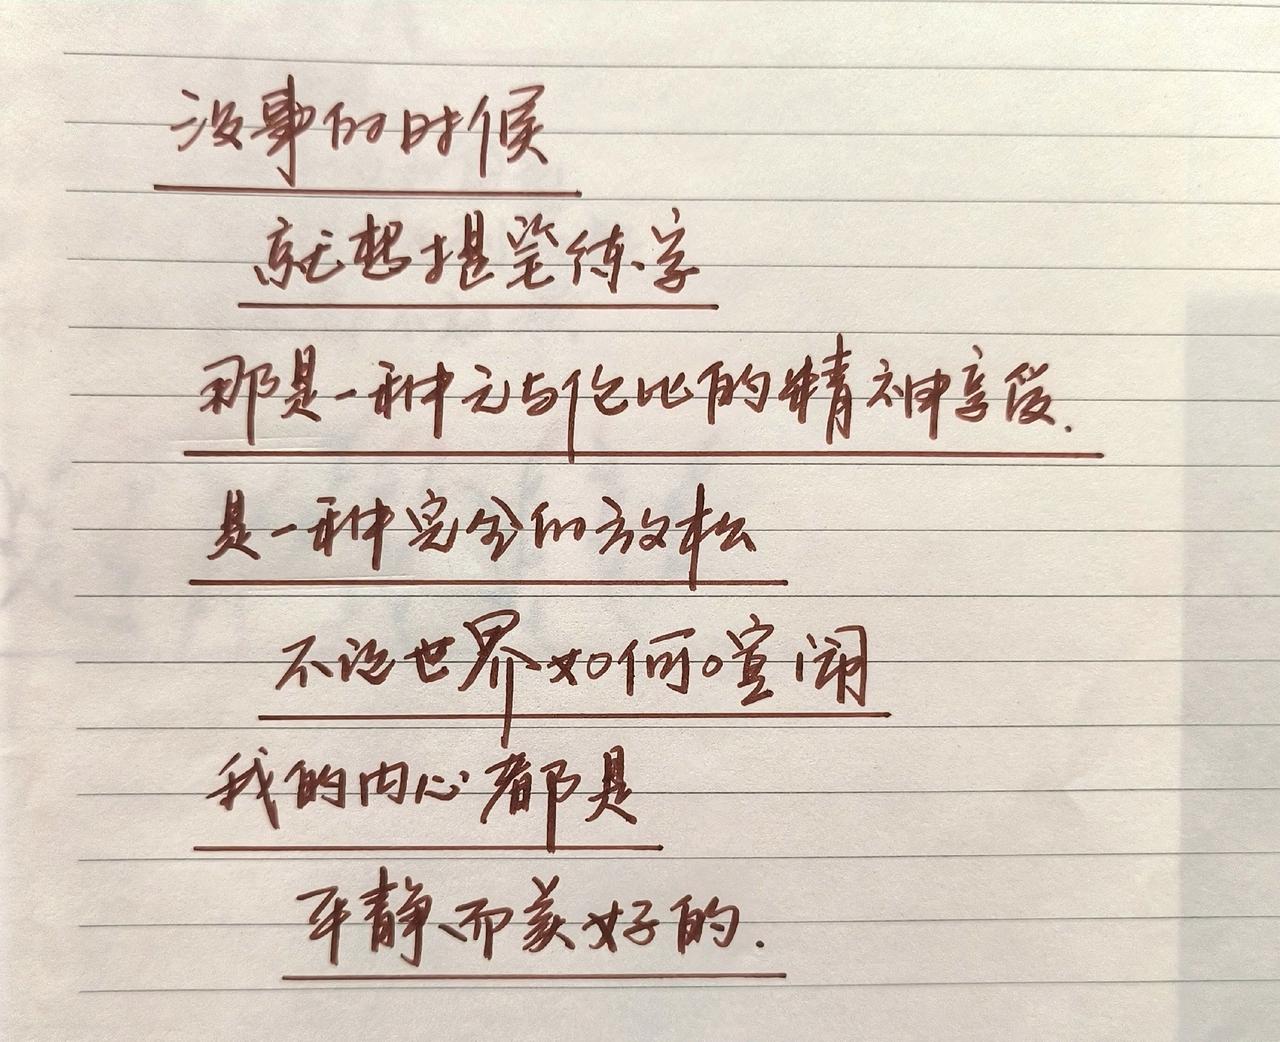 没事的时候
就想提笔练字
那是一种无与伦比的精神享受.
是一种完全的放松
不论世界如何喧闹
我的内心都是
平静而美好的.